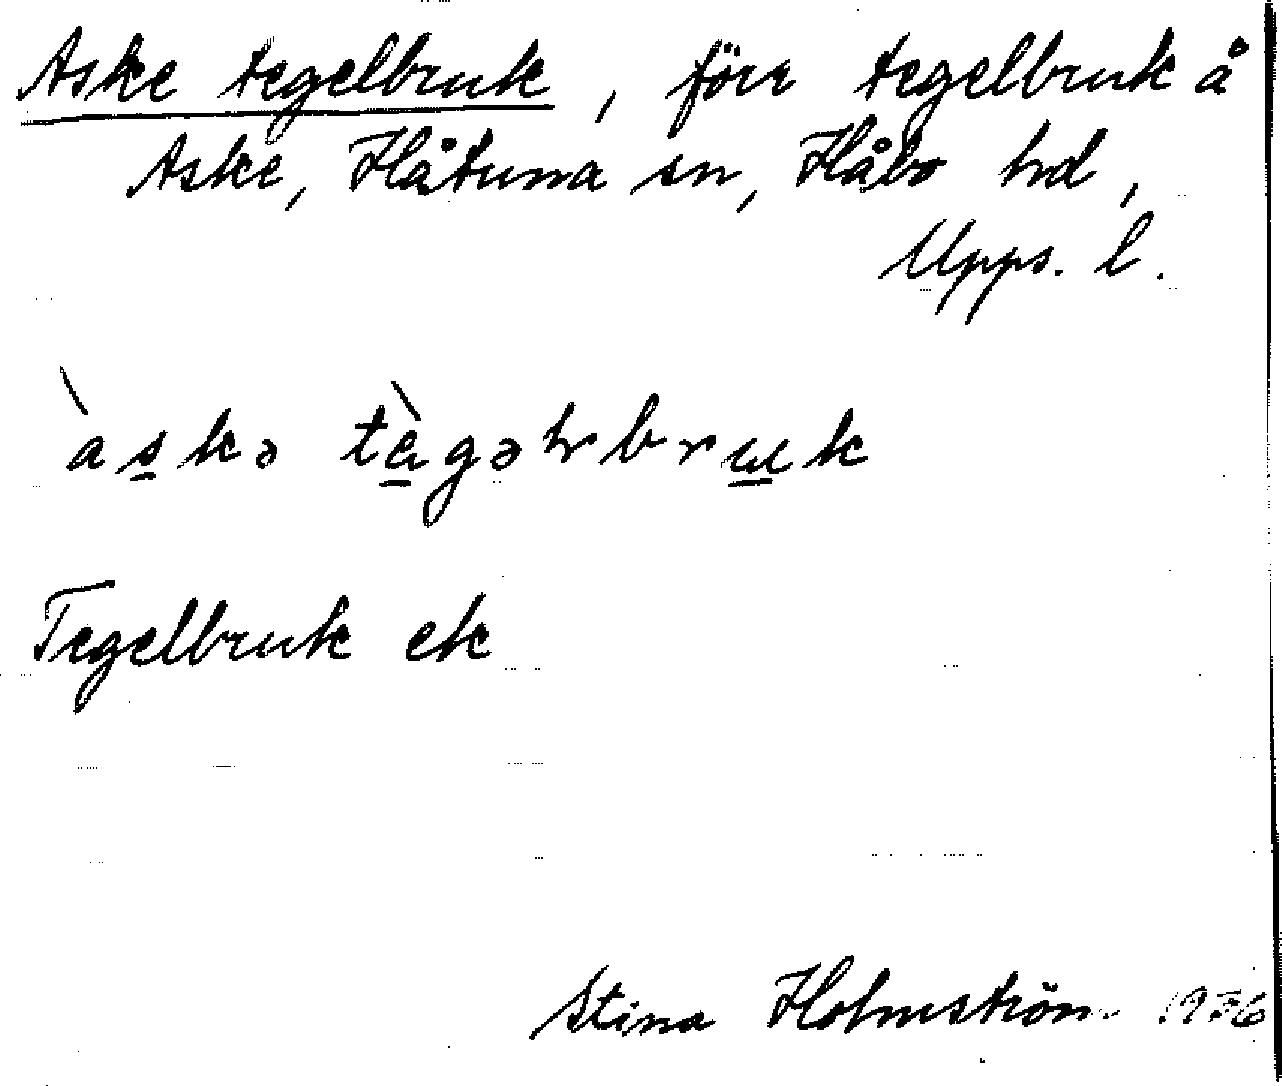 Aske tegelbruk, förr tegelbruk å
Aske, Håtuna sn, Håbo hd,
Upps. l.
àskə tègəlbruk
Tegelbruk ek
Stina Holmström 1936